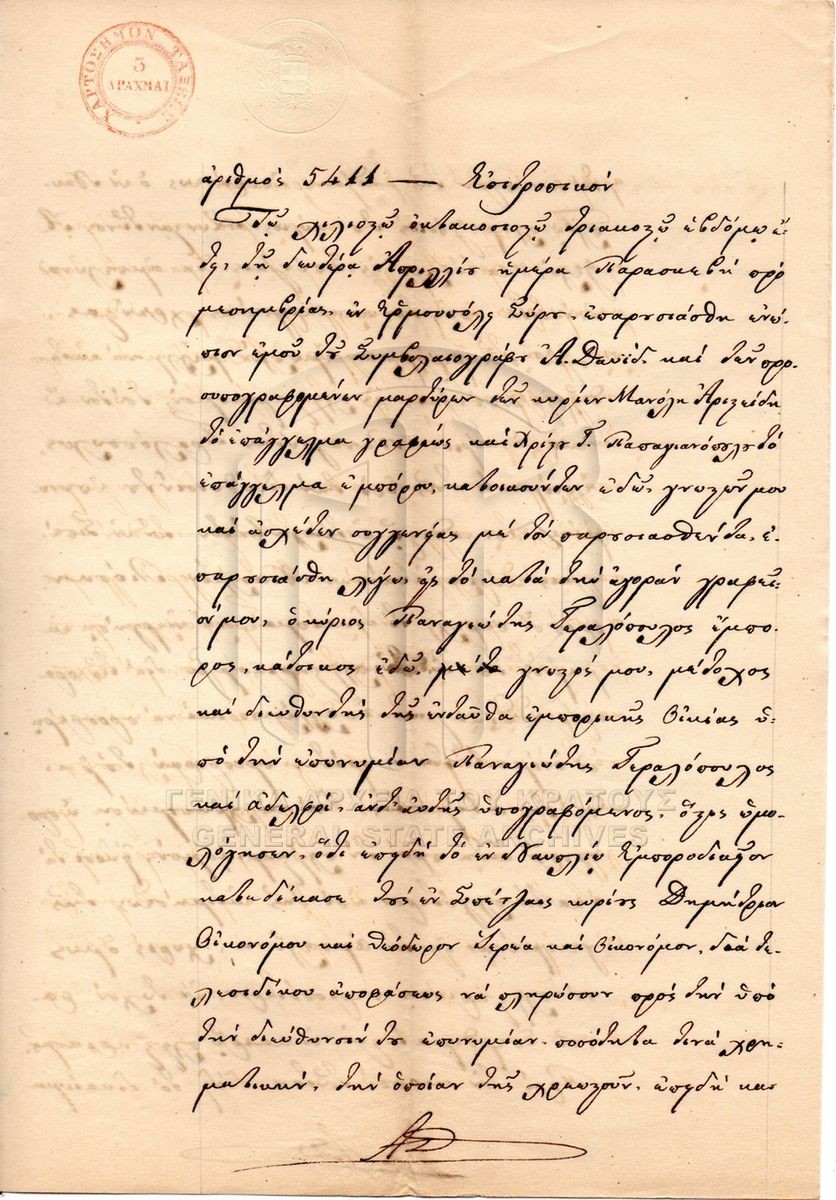 ΧΑΡΤΟΣΗΜΟΝ ΤΑΞΕΩΣ
3
ΔΡΑΧΜΑΙ
ἀριθμός 5411 — Ἐπιτροπικόν
Τῷ χιλιοστῷ ὀκτακοσιοστῷ τριακοστῷ ἑβδόμῳ ἔ-
τει, τῇ δευτέρᾳ Ἀπριλλίου ἡμέρᾳ Παρασκευῇ πρό
μεσημβρίας, ἐν Ἑρμουπόλει Σύρου, ἐπαρουσιάσθη ἐνώ-
πιον ἐμοῦ τοῦ Συμβολαιογράφου Α. Δαυίδ. καί τῶν προσ-
υπογραφομένων μαρτύρων των κυρίων Μανόλη Ἀριστείδη
τό ἐπάγγελμα γραφέως καί Χρίστου Γ. Παπαγιανόπουλου τό
ἐπάγγελμα ἐμπόρου, κατοικούντων ἐδῶ, γνωστῶν μου
καί ἀσχέτων συγγενείας μέ τόν παρουσιασθέντα, ἐ-
παρουσιάσθη λέγω εἰς τό κατά τήν ἀγοράν γραφεῖ-
όν μου, ὁ κύριος Παναγιώτης Γεραλόπουλος ἔμπο-
ρος, κάτοικος ἐδῶ, γνωστός μου, μέτοχος
καί διευθυντής τῆς ἐνταῦθα ἐμπορικῆς Οἰκίας ὑ-
πό τήν ἐπωνυμίαν Παναγιώτης Γεραλόπουλος
καί ἀδελφοί, ἀντ' αὐτῆς ὑπογραφόμενος, ὅστις ὡμο-
λόγησεν, ὅτι ἐπειδή τό ἐν Ναυπλίῳ Ἐμποροδικεῖον
κατεδίκασε τούς ἐν Σπέτζαις κυρίους Δημήτριον
Οἰκονόμου καί Θεόδωρον Ἱερέα καί Οἰκονόμον, διά τε-
λεσιδίκου ἀποφάσεως νά πληρώσουν πρός τήν ὑπό
τήν διεύθυνσίν του ἐπωνυμίαν ποσότητα τινά χρη-
ματικήν, τήν ὁποίαν τῆς χρεωστοῦν, ἐπειδή και
ΑΔ
ΓΕΝΙΚΑ ΑΡΧΕΙΑ ΤΟΥ ΚΡΑΤΟΥΣ
GENERAL STATE ARCHIVES